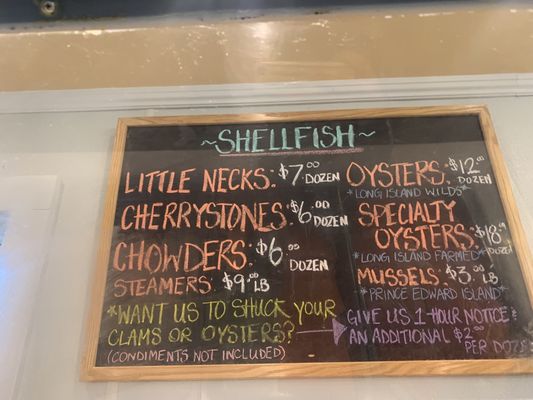 ~SHELLFISH~
LITTLE NECKS: $7.00 DOZEN
CHERRYSTONES: $6.00 DOZEN
CHOWDERS: $6.00 DOZEN
STEAMERS: $9.00 LB
*WANT US TO SHUCK YOUR
CLAMS OR OYSTERS?
(CONDIMENTS NOT INCLUDED)
OYSTERS: $12.00 DOZEN
*LONG ISLAND WILDS*
SPECIALTY
OYSTERS: $18.00 DOZEN
*LONG ISLAND FARMED*
MUSSELS: $3.00 LB
*PRINCE EDWARD ISLAND*
GIVE US 1-HOUR NOTICE &
AN ADDITIONAL $2.00
PER DOZEN